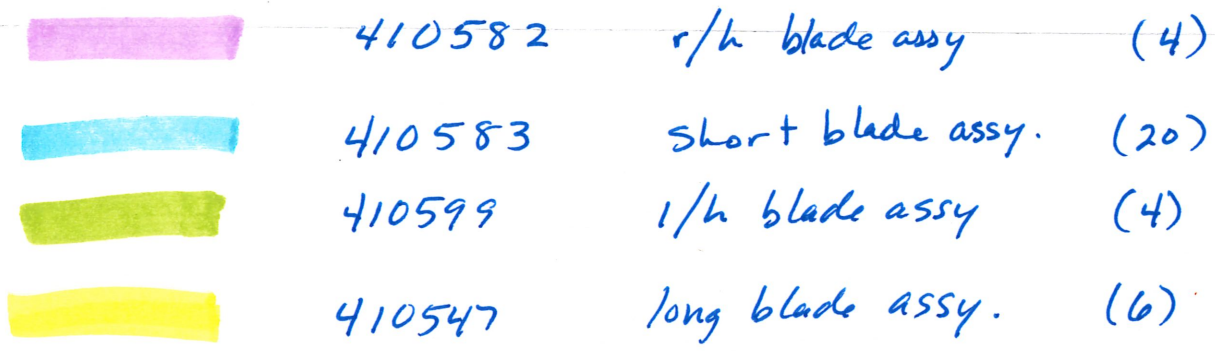 410582 r/h blade assy (4)
410583 short blade assy. (20)
410599 l/h blade assy (4)
410547 long blade assy. (6)